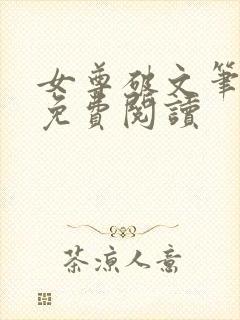 女尊破文筆
免費閱讀
茶凉人意